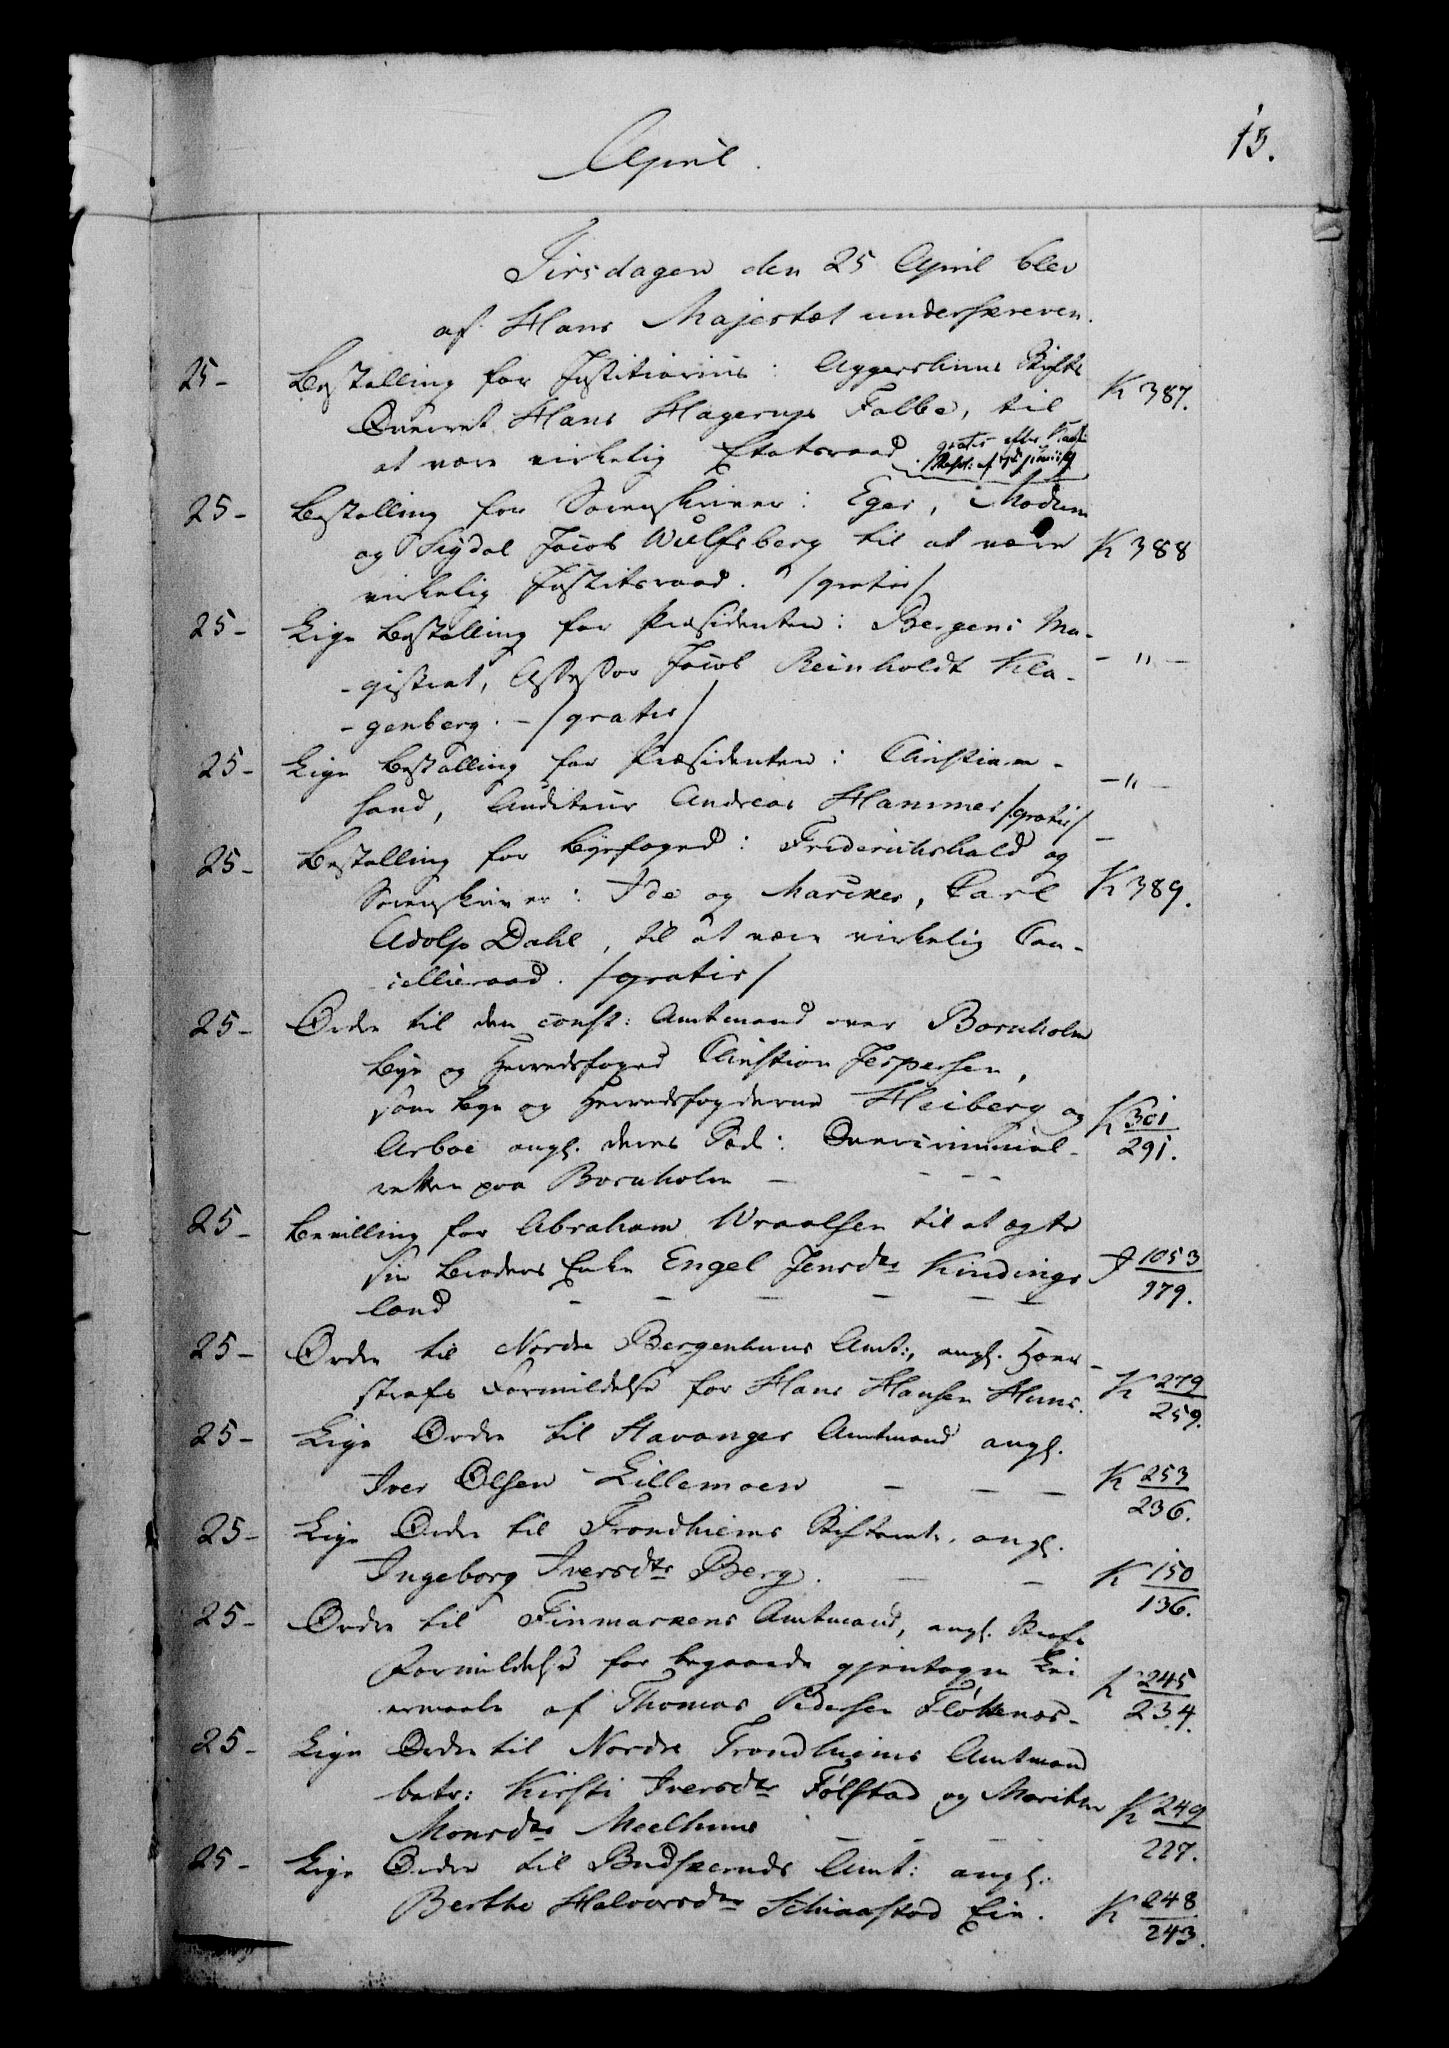 15.
April.
Tirsdagen den 25 April blev
af Hans Majestæt underskreven.
25- Bestalling for Justitiarius i Aggershuus Stifts K 387.
Overret Hans Hagerup Falbe, til
at være virkelig Etatsraad gratis efter
25- Bestalling for Sorenskriver i Eger, Modum
og Sigdal Jacob Wulfsberg til at være K 388
virkelig Justitsraad. /gratis/
25- Lige Bestalling for Præsidenten i Bergens Ma-
-gistrat, Assessor Jacob Reinholdt Kla- - " -
-genberg. - /gratis/
25- Lige Bestalling for Præsidenten i Christian- - " -
sand, Auditeur Andreas Hammer /gratis/ -
25- Bestalling for Byefoged i Friderichshald og
Sorenskriver i Ide og Marker, Carl K 389.
Adolph Dahl, til at være virkelig Can-
cellieraad. /gratis/
25- Ordre til den const: Amtmand over Bornholm
Bye og Herredsfoged Christian Jespersen,
som Bye og Herredsfogderne Heiberg og K 301
Arboe angl. deres Sæde i Overcriminal- 291.
retten paa Bornholm - - -
25- Bevilling for Abraham Wraalsen til at ægte
sin Broders Enke Engel Jensdtr Kindings I 1053
land - - - - - - 979.
25- Ordre til Nordre Bergenhuus Amt:, angl. Hoer-
strafs Formildelse for Hans Hansen Huus. K 279
259.
25- Lige Ordre til Stavanger Amtmand angl.
Iver Olsen Lillemoen - - - K 253
236.
25- Lige Ordre til Trondhiems Stiftamt. angl.
Ingeborg Iversdtr Berg. - - K 150
136.
25- Ordre til Finmarkens Amtmand, angl. Straf
Formildelse for begaaede gjentagne Lei K 245
ermaale af Thomas Pedersen Fløttenæs- 234.
25- Lige Ordre til Nordre Trondhiems Amtmand
betr: Kirsti Iversdtr Følstad og Marithe K 249
Monsdtr Meelhuus - - - 227.
25- Lige Ordre til Budskeruds Amt: angl.
Berthe Halvorsdtr Schiaastad Eie. K 248
243.